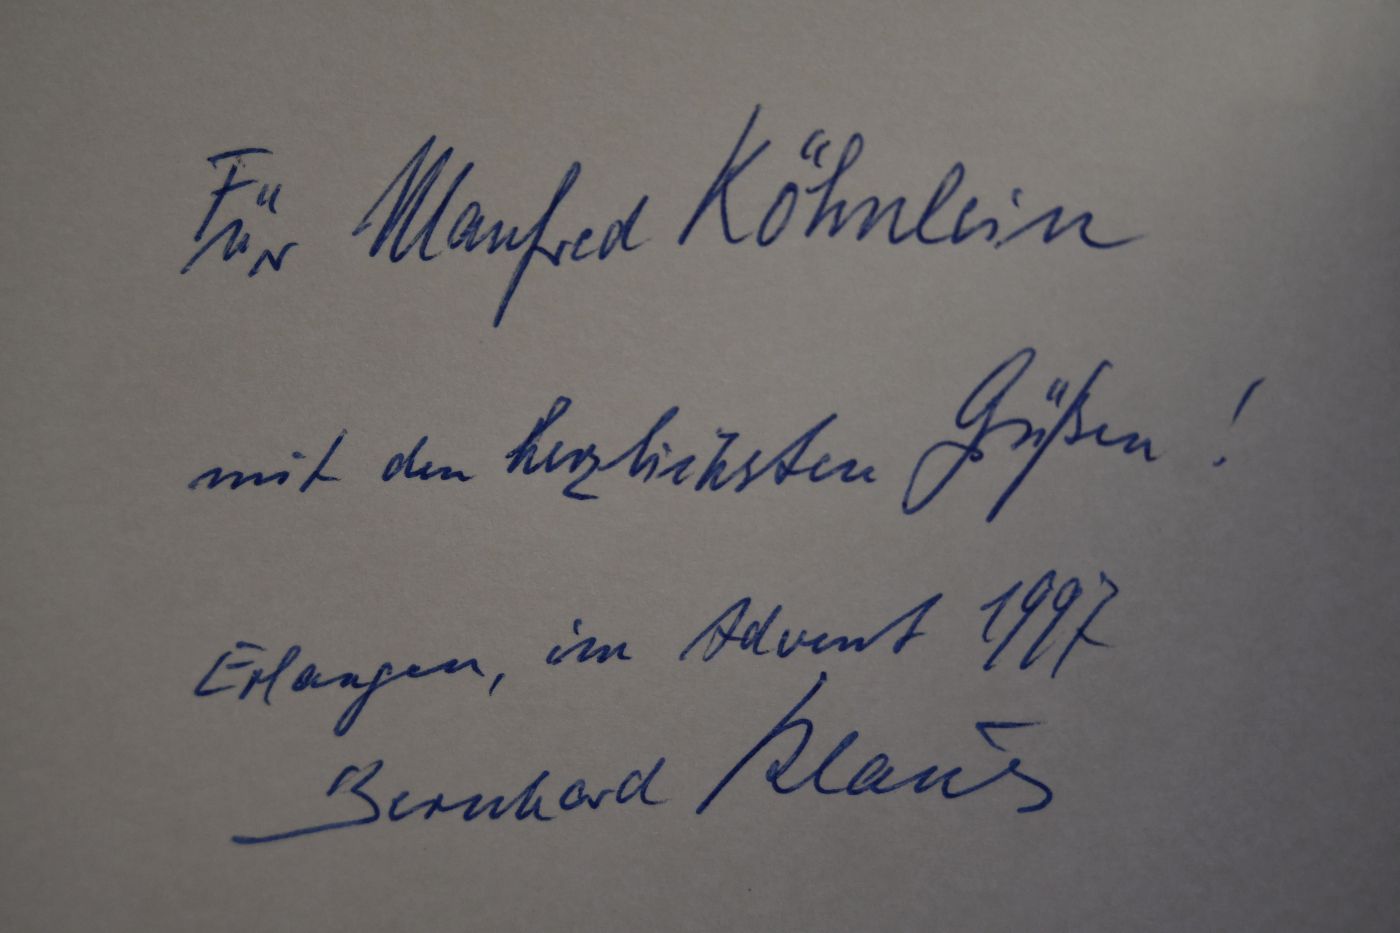 Für Manfred Köhnlein
mit den herzlichsten Grüßen !
Erlangen, im Advent 1997
Bernhard Klaus